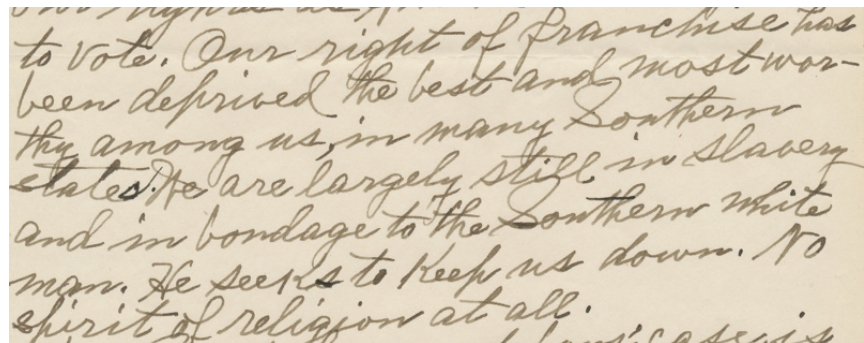 to vote. Our right of franchise has
been deprived the best and most wor-
thy among us, in many Southern
states. We are largely still in slavery
and in bondage to the Southern white
man. He seeks to keep us down. No
spirit of religion at all.